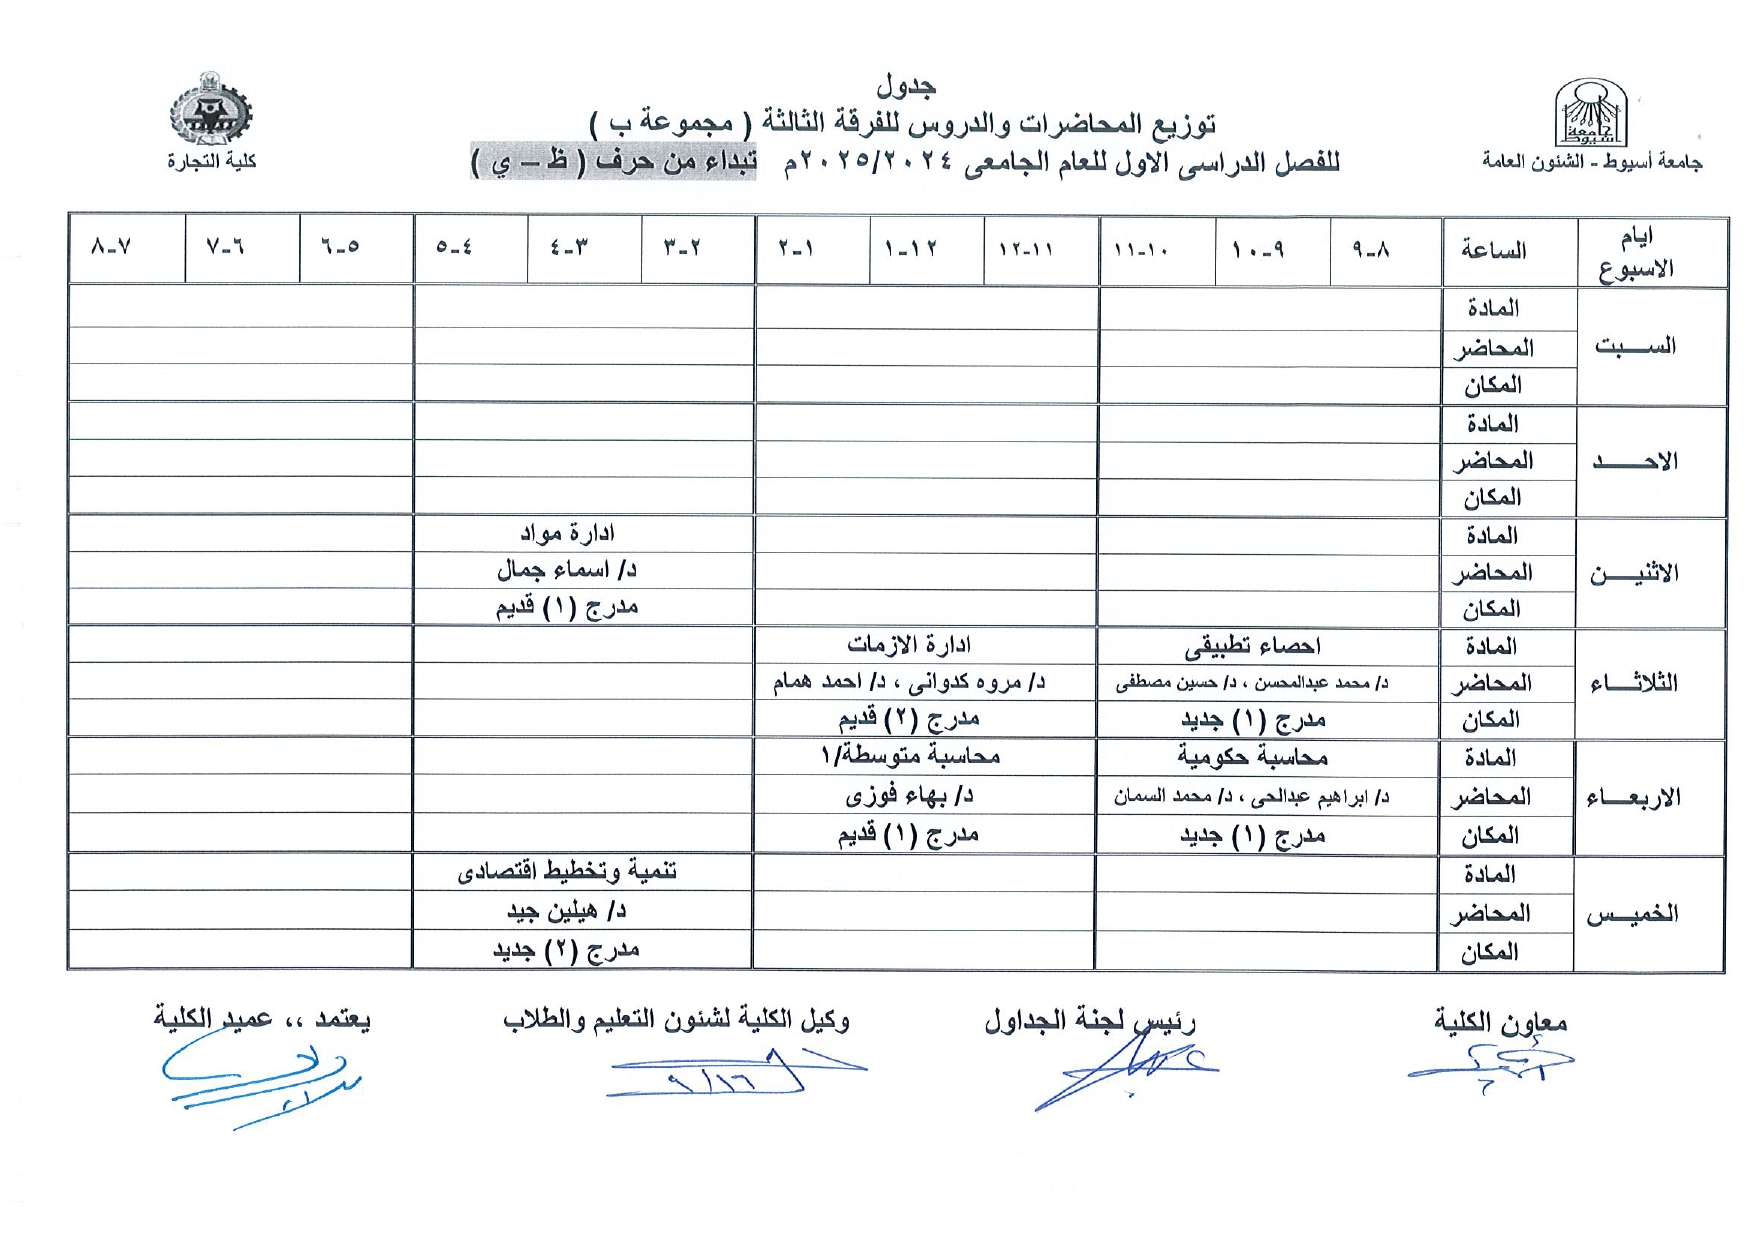 جدول
توزيع المحاضرات والدروس للفرقة الثالثة ( مجموعة ب )
للفصل الدراسى الاول للعام الجامعى ٢٠٢٥/٢٠٢٤م تبداء من حرف ( ظ – ي )
جامعة أسيوط
جامعة أسيوط - الشئون العامة
كلية التجارة
ايام الاسبوع الساعة ٨-٩ ٩-١٠ ١٠-١١ ١١-١٢ ١٢-١ ١-٢ ٢-٣ ٣-٤ ٤-٥ ٥-٦ ٦-٧ ٧-٨
السبت
المادة
المحاضر
المكان
الاحد
المادة
المحاضر
المكان
الاثنين
المادة ادارة مواد
المحاضر د/ اسماء جمال
المكان مدرج (١) قديم
الثلاثاء
المادة احصاء تطبيقى ادارة الازمات
المحاضر د/ محمد عبدالمحسن ، د/ حسين مصطفى د/ مروه كدوانى ، د/ احمد همام
المكان مدرج (١) جديد مدرج (٢) قديم
الاربعاء
المادة محاسبة حكومية محاسبة متوسطة/١
المحاضر د/ ابراهيم عبدالحى ، د/ محمد السمان د/ بهاء فوزى
المكان مدرج (١) جديد مدرج (١) قديم
الخميس
المادة تنمية وتخطيط اقتصادى
المحاضر د/ هيلين جيد
المكان مدرج (٢) جديد
معاون الكلية رئيس لجنة الجداول وكيل الكلية لشئون التعليم والطلاب يعتمد ،، عميد الكلية
٩/١٦